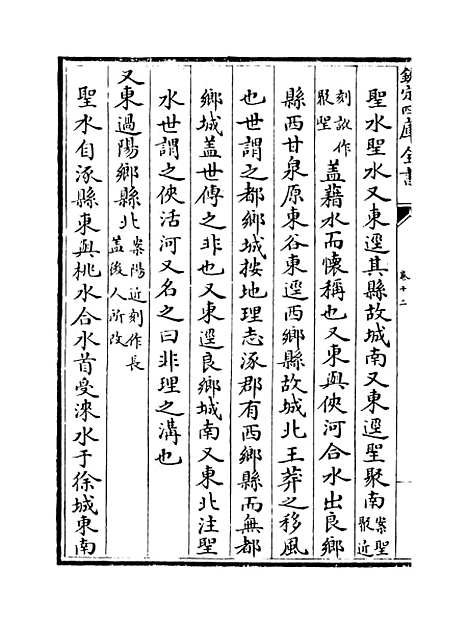 欽定四庫全書
卷十二
聖水聖水又東逕其縣故城南又東逕聖聚南案聖聚近
刻訛作聚聖蓋藉水而懷稱也又東與俠河合水出良鄉
縣西甘泉原東谷東逕西鄉縣故城北王莽之移風
也世謂之都鄉城按地理志涿郡有西鄉縣而無都
鄉城蓋世傳之非也又東逕良鄉城南又東北注聖
水世謂之俠活河又名之曰非理之溝也
又東過陽鄉縣北案陽近刻作長蓋後人所改
聖水自涿縣東與桃水合水首受淶水于徐城東南